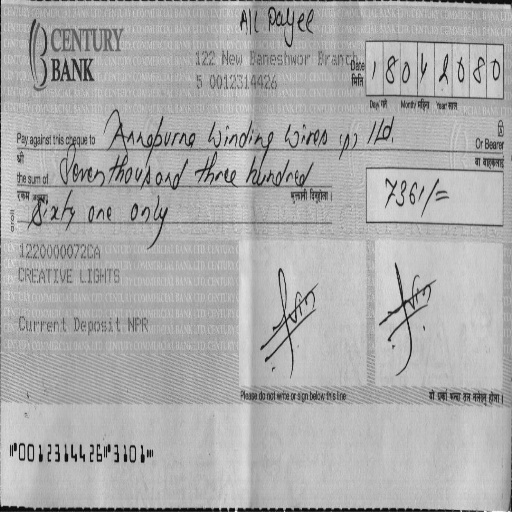 A/C Payee
CENTURY
BANK
122 New Baneshwor Branch
5 0012314426
Date
मिति
18042080
Day गते Month महिना Year साल
Pay against this cheque to Annapurna Winding Wires (P) ltd.
श्री
Or Bearer
वा वाहकलाई
the sum of Seven thousand three hundred
रकम
भुक्तानी दिनुहोला ।
Sixty one only
7361/=
1220000072CA
CREATIVE LIGHTS
Current Deposit NPR
Please do not write or sign below this line
⑈0012314426⑈3101⑈